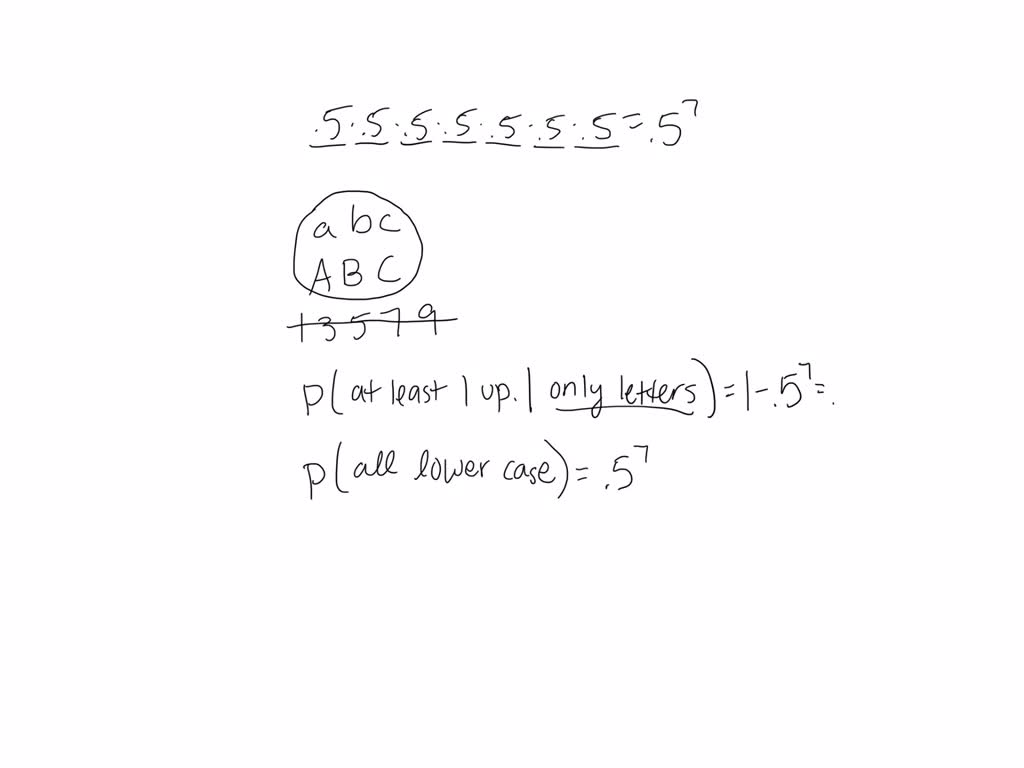 .5 · .5 · .5 · .5 · .5 · .5 · .5 = .5^7
a b c
A B C
1 3 5 7 9
P(at least 1 up. | only letters) = 1 - .5^7 = .
P(all lower case) = .5^7